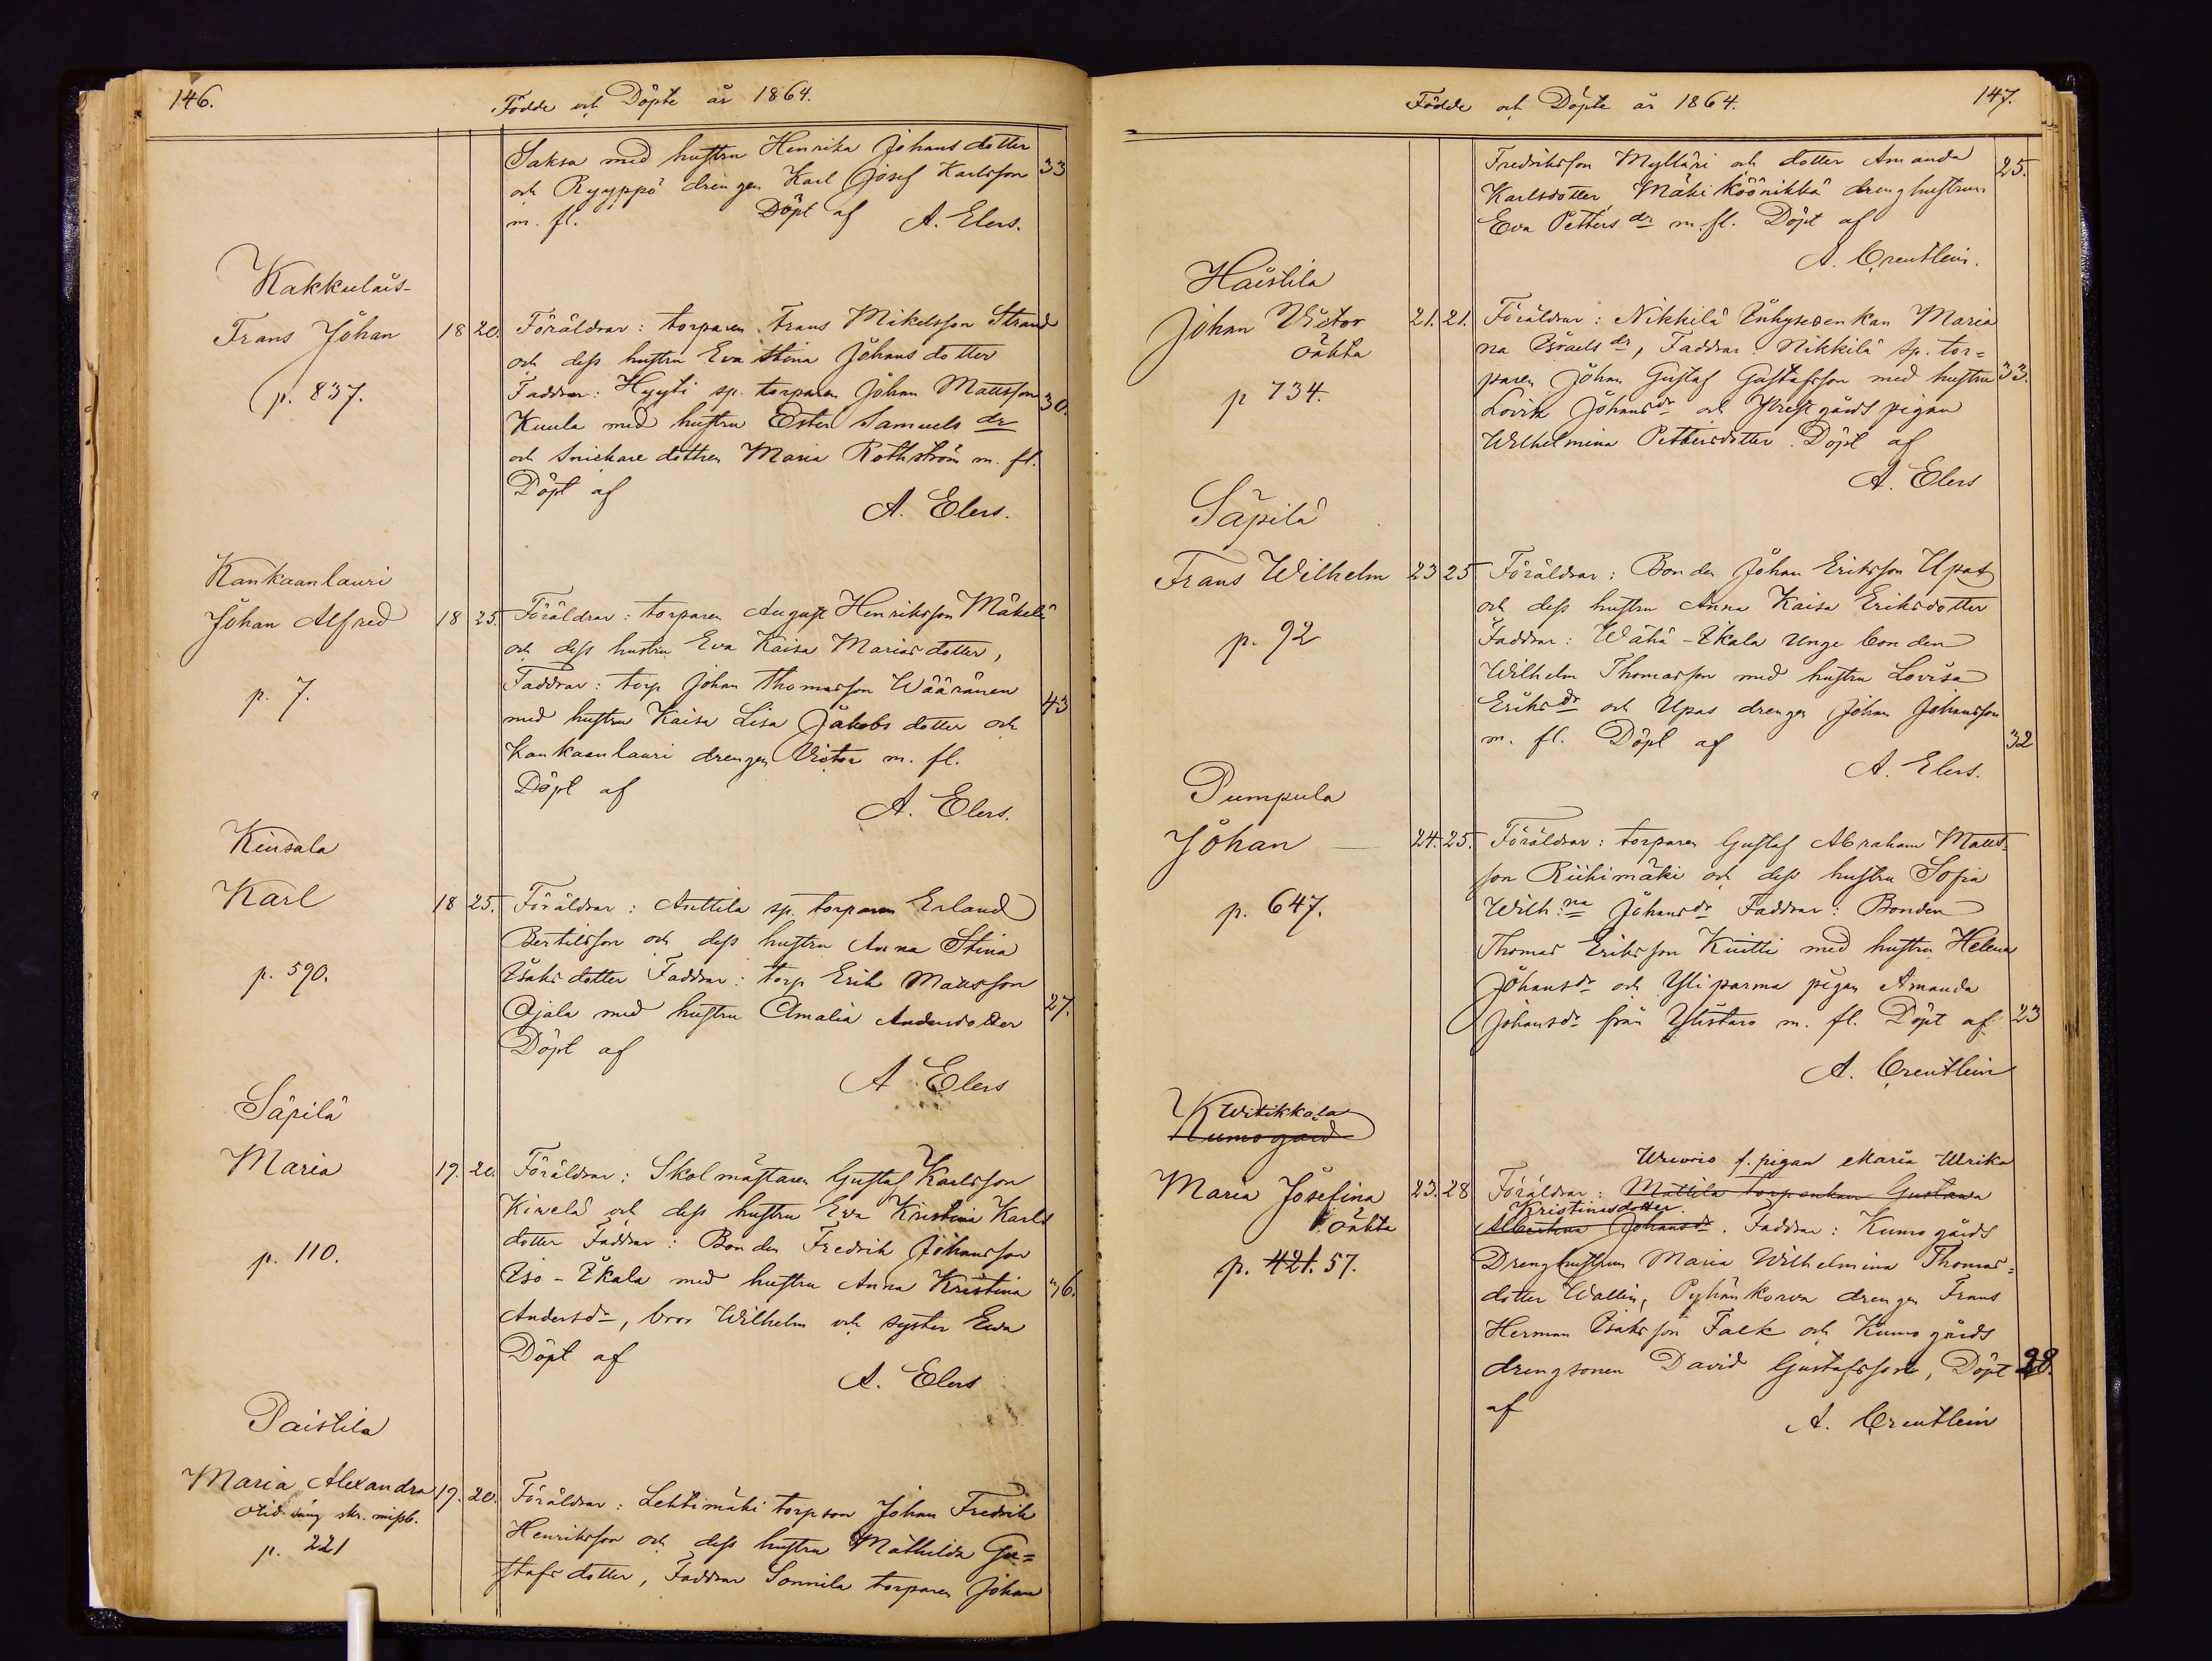 146.
Födde och Döpte år 1864.
Saksa med hustru Henrika Johansdotter
och Ryyppö drengen Karl Josef Karlsson 33
m. fl. Döpt af A. Elers.
Kakkulais-
Frans Johan 18 20. Föräldrar: torparen Frans Mikelsson Strand
och dess hustru Eva Stina Johansdotter
p. 837. Faddrar: Hyyti sp. torparen Johan Mattsson 30.
Kuula med hustru Ester Samuels dr
och Snickare dottren Maria Rothström m. fl.
Döpt af
A. Elers.
Kankaanlauri
Johan Alfred 18 25. Föräldrar: torparen August Henriksson Mäkelä
och dess hustru Eva Kaisa Mariasdotter,
p. 7. Faddrar: torp Johan Thomasson Wääränen 43
med hustru Kaisa Lisa Jakobsdotter och
Kankaanlauri drengen Victor m. fl.
Döpt af
A. Elers.
Kinsala
Karl 18 25. Föräldrar: Anttila sp. torparen Erland
Bertilsson och dess hustru Anna Stina
p. 590. Isaksdotter Faddrar: torp Erik Mattsson
Ojala med hustru Amalia Andersdotter 27.
Döpt af
A Elers
Säpilä
Maria 19. 20. Föräldrar: Skolmästaren Gustaf Karlsson
Kiwelä och dess hustru Eva Kristina Karls
dotter Faddrar: Bonden Fredrik Johansson
p. 110. Iso-Ikala med hustru Anna Kristina 36.
Andersdr, bror Wilhelm och syster Ewa
Döpt af
A. Elers
Paistila
Maria Alexandra 19. 20. Föräldrar: Lehtimäki torpson Johan Fredrik
p. 221 Henriksson och dess hustru Mathilda Gu=
stafsdotter, Faddrar Sonnila torparen Johan
Födde och Döpte år 1864.
147.
Fredriksson Myltäri och dotter Amanda 25.
Karlsdotter, Mäki köönikkä drenghustrun
Eva Petters dr m. fl. Döpt af
A. Creutlein.
Haistila
Johan Victor 21. 21. Föräldrar: Nikkilä Inhysesenkan Maria
oäkta na Israels dr, Faddrar: Nikkilä sp. tor=
p 734. paren Johan Gustaf Gustafsson med hustru 33.
Lovisa Johansdr och Prestgårds pigan
Wilhelmina Pettersdotter. Döpt af
A. Elers
Säpilä
Frans Wilhelm 23 25 Föräldrar: Bonden Johan Eriksson Upas
och dess hustru Anna Kaisa Eriksdotter
p. 92 Faddrar: Wähä-Ikala unge bonden
Wilhelm Thomasson med hustru Lovisa
Eriksdr och Upas drengen Johan Johansson
m. fl. Döpt af 32
A. Elers.
Pumpula
Johan 24. 25. Föräldrar: torparen Gustaf Abraham Matts-
son Riihimäki och dess hustru Sofia
p. 647. Wilh:na Johansdr Faddrar: Bonden
Thomas Eriksson Kuitti med hustru Helena
Johansdr och Yliparma pigan Amanda
Johansdr från Ylistaro m. fl. Döpt af 23
A. Creutlein
Witikkala
Kumogård
Wrevois f. pigan Maria Ulrika
Maria Josefina 23. 28 Föräldrar: Mattila torpenkan Gustawa
Kristinasdotter.
oäkta Albertina Johansdr. Faddrar: Kumogårds
p. 421. 57. Drenghustrun Maria Wilhelmina Thomas=
dotter Wallin, Pyhänkorva drengen Frans
Herman Isaksson Falk och Kumogårds
drengsonen David Gustafsson, Döpt 28.
af
A. Creutlein